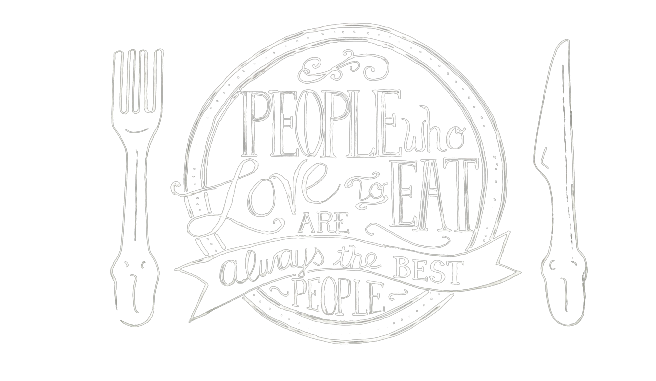 PEOPLE who
Love to EAT
ARE
always the BEST
PEOPLE